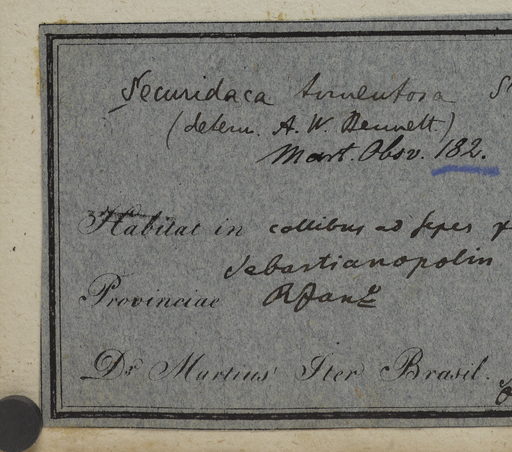 Securidaca tomentosa S
(determ. A. W. Bennett)
Mart. Obsv. 182.
Habitat in collibus ad sepes
Sebastianopolin
Provinciae
Dr. Martius Iter Brasil.